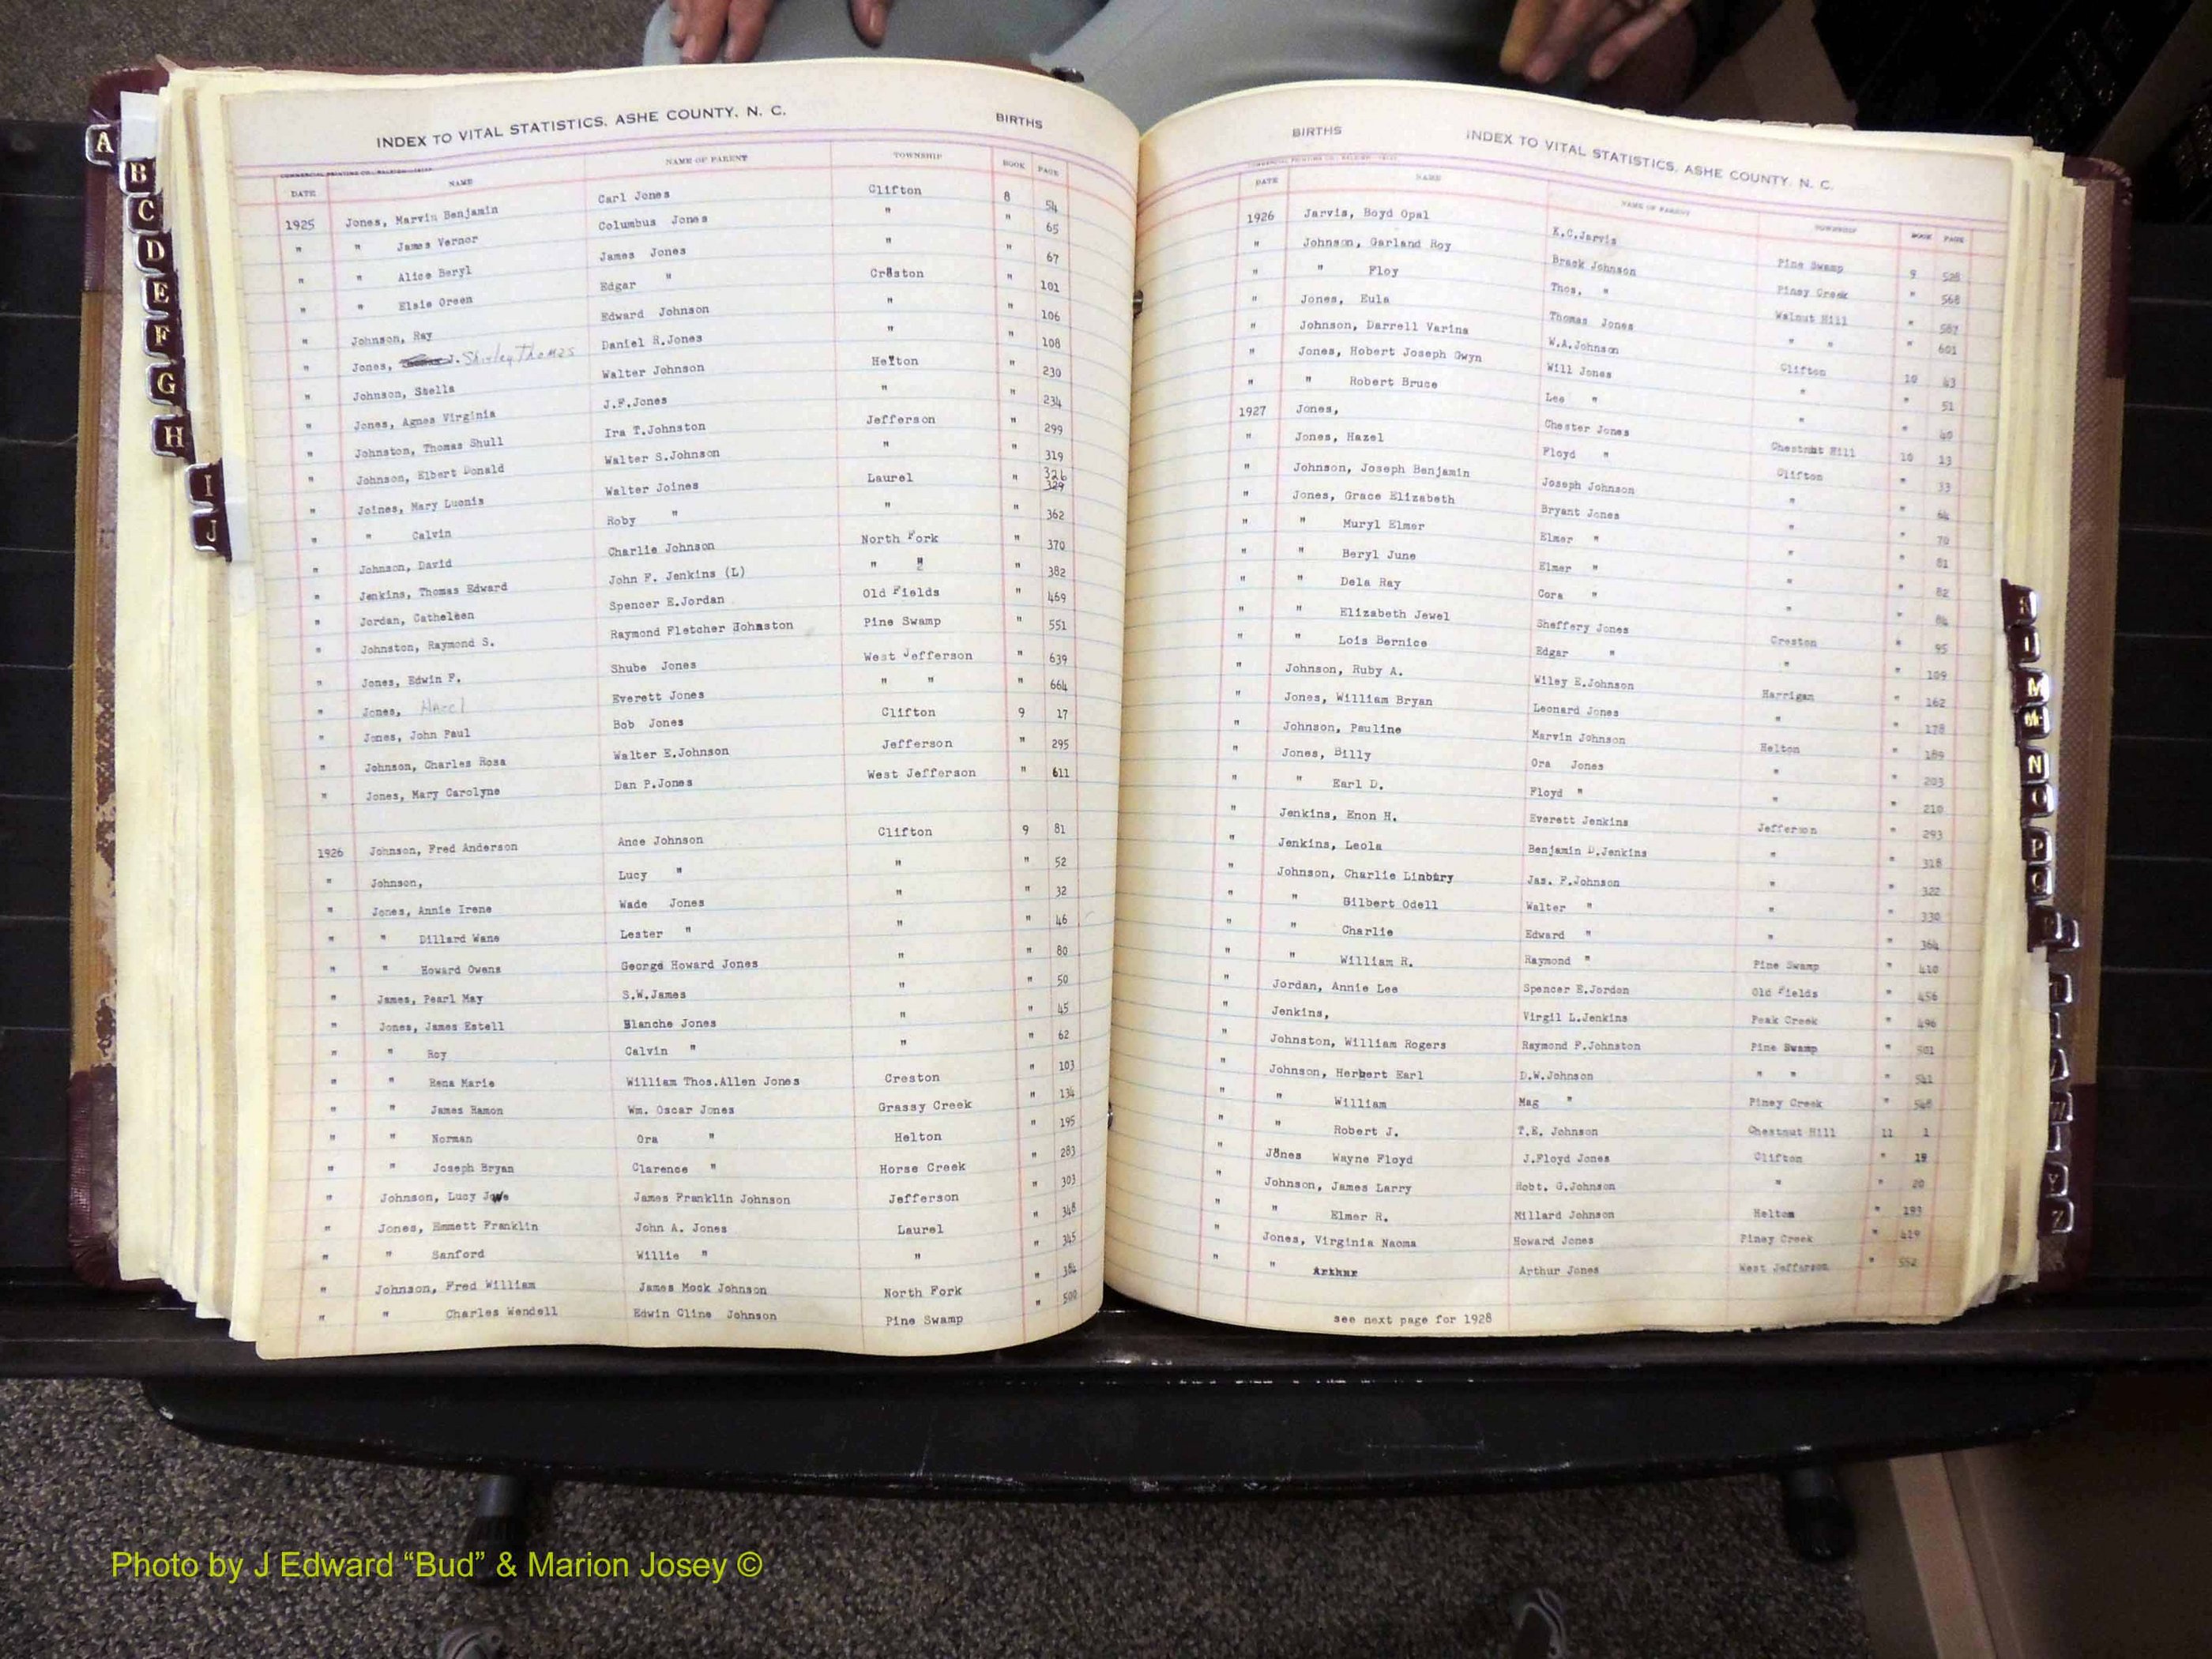 INDEX TO VITAL STATISTICS, ASHE COUNTY, N. C. BIRTHS
COMMERCIAL PRINTING CO., RALEIGH
DATE NAME NAME OF PARENT TOWNSHIP BOOK PAGE
1925 Jones, Marvin Benjamin Carl Jones Clifton 8 54
" " James Vernor Columbus Jones " " 65
" " Alice Beryl James Jones " " 67
" " Elsie Oreen Edgar " Creston " 101
" Johnson, Ray Edward Johnson " " 106
" Jones, J. Shirley Thomas Daniel R.Jones " " 108
" Johnson, Stella Walter Johnson Helton " 230
" Jones, Agnes Virginia J.F.Jones " " 234
" Johnston, Thomas Shull Ira T.Johnston Jefferson " 299
" Johnson, Elbert Donald Walter S.Johnson " " 319
" Joines, Mary Luonis Walter Joines Laurel " 326 329
" " Calvin Roby " " " 362
" Johnson, David Charlie Johnson North Fork " 370
" Jenkins, Thomas Edward John F. Jenkins (L) " " " 382
" Jordan, Catheleen Spencer E.Jordan Old Fields " 469
" Johnston, Raymond S. Raymond Fletcher Johnston Pine Swamp " 551
" Jones, Edwin F. Shube Jones West Jefferson " 639
" Jones, Hazel Everett Jones " " " 664
" Jones, John Paul Bob Jones Clifton 9 17
" Johnson, Charles Ross Walter E.Johnson Jefferson " 295
" Jones, Mary Carolyne Dan P.Jones West Jefferson " 611
1926 Johnson, Fred Anderson Ance Johnson Clifton 9 81
" Johnson, Lucy " " " 52
" Jones, Annie Irene Wade Jones " " 32
" " Dillard Wane Lester " " " 46
" " Howard Owens George Howard Jones " " 80
" James, Pearl May S.W.James " " 50
" Jones, James Estell Blanche Jones " " 45
" " Roy Calvin " " " 62
" " Rena Marie William Thos.Allen Jones Creston " 103
" " James Ramon Wm. Oscar Jones Grassy Creek " 134
" " Norman Ora " Helton " 195
" " Joseph Bryan Clarence " Horse Creek " 283
" Johnson, Lucy James Franklin Johnson Jefferson " 303
" Jones, Emmett Franklin John A. Jones Laurel " 348
" " Sanford Willie " " " 345
" Johnson, Fred William James Mock Johnson North Fork " 384
" " Charles Wendell Edwin Cline Johnson Pine Swamp " 500
BIRTHS INDEX TO VITAL STATISTICS, ASHE COUNTY, N. C.
DATE NAME NAME OF PARENT TOWNSHIP BOOK PAGE
1926 Jarvis, Boyd Opal K.C.Jarvis Pine Swamp 9 528
" Johnson, Garland Roy Brack Johnson Piney Creek " 568
" " Floy Thos. " Walnut Hill " 587
" Jones, Eula Thomas Jones " " " 601
" Johnson, Darrell Varina W.A.Johnson Clifton 10 43
" Jones, Hobert Joseph Gwyn Will Jones " " 51
" " Robert Bruce Lee " " " 40
1927 Jones, Chester Jones Chestnut Hill 10 13
" Jones, Hazel Floyd " Clifton " 33
" Johnson, Joseph Benjamin Joseph Johnson " " 64
" Jones, Grace Elizabeth Bryant Jones " " 70
" " Muryl Elmer Elmer " " " 81
" " Beryl June Elmer " " " 82
" " Dela Ray Cora " " " 84
" " Elizabeth Jewel Sheffery Jones Creston " 95
" " Lois Bernice Edgar " " " 109
" Johnson, Ruby A. Wiley E.Johnson Harrigan " 162
" Jones, William Bryan Leonard Jones " " 178
" Johnson, Pauline Marvin Johnson Helton " 189
" Jones, Billy Ora Jones " " 203
" " Earl D. Floyd " " " 210
" Jenkins, Enon H. Everett Jenkins Jefferson " 293
" Jenkins, Leola Benjamin D.Jenkins " " 318
" Johnson, Charlie Linbury Jas. F.Johnson " " 322
" " Gilbert Odell Walter " " " 330
" " Charlie Edward " " " 364
" " William R. Raymond " Pine Swamp " 410
" Jordan, Annie Lee Spencer E.Jordon Old Fields " 456
" Jenkins, Virgil L.Jenkins Peak Creek " 496
" Johnston, William Rogers Raymond F.Johnston Pine Swamp " 501
" Johnson, Herbert Earl D.W.Johnson " " " 541
" " William Mag " Piney Creek " 548
" " Robert J. T.E. Johnson Chestnut Hill 11 1
" Jones Wayne Floyd J.Floyd Jones Clifton " 19
" Johnson, James Larry Robt. G.Johnson " " 20
" " Elmer R. Millard Johnson Helton " 193
" Jones, Virginia Naoma Howard Jones Piney Creek " 419
" " Arthur Arthur Jones West Jefferson " 552
see next page for 1928
A
B
C
D
E
F
G
H
I
J
M
N
O
P
Q
W
Y
Z
Photo by J Edward “Bud” & Marion Josey ©